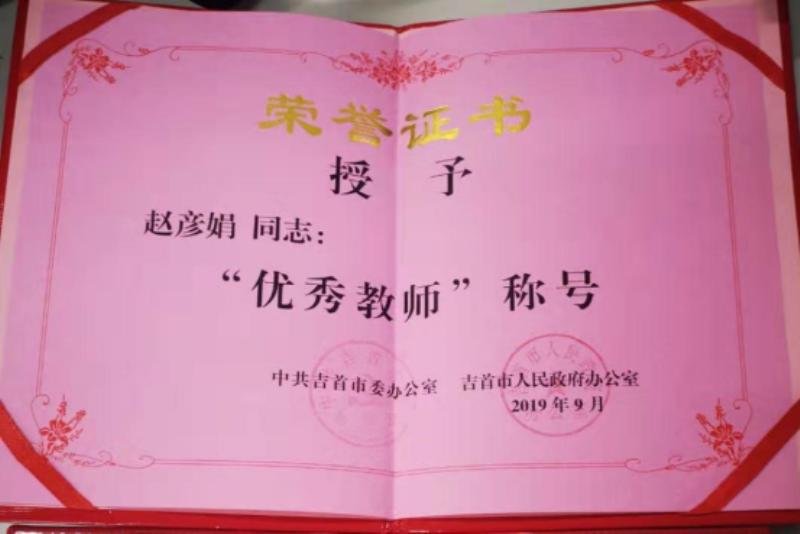 荣誉证书
授 予
赵彦娟 同志：
“优秀教师”称号
中共吉首市委办公室 吉首市人民政府办公室
2019 年 9 月